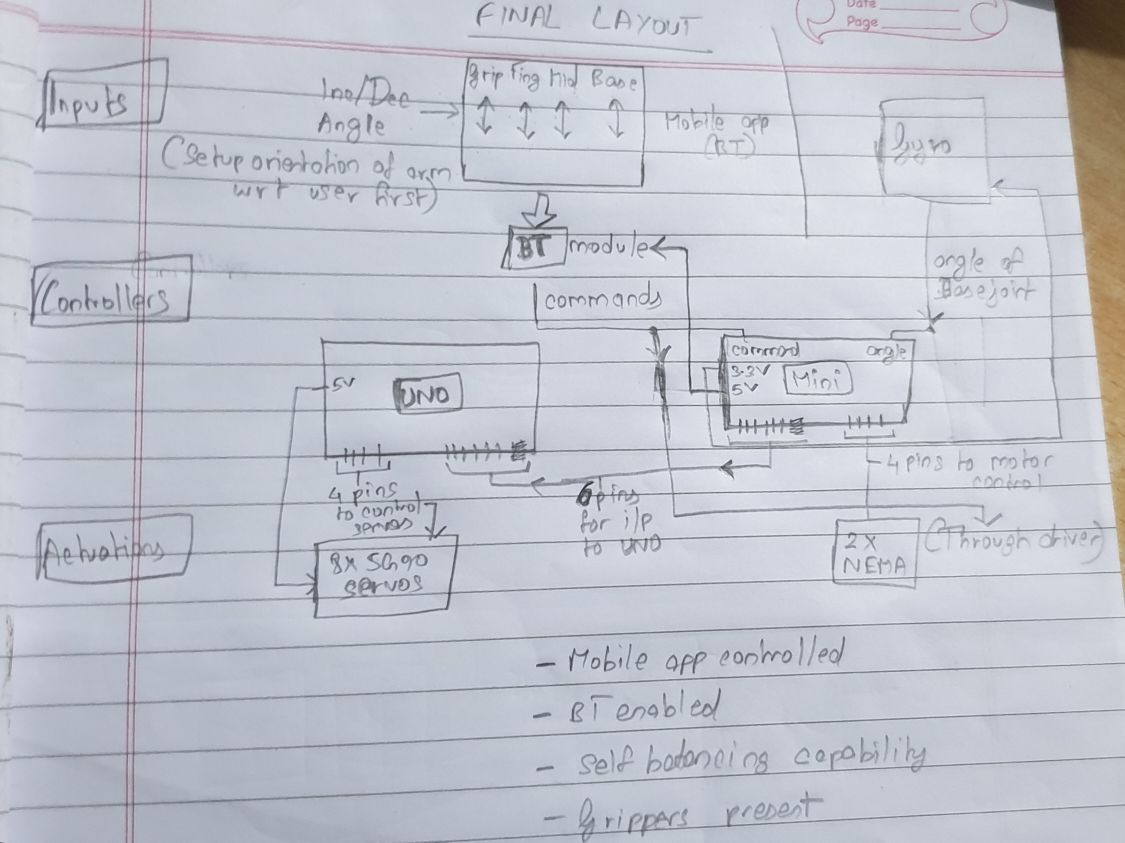 FINAL LAYOUT
Date
Page
Inputs
Inc/Dec
Angle
(Setup orientation of arm
wrt user first)
Grip Fing Mid Base
Mobile app
(BT)
Gyro
BT module
Controllers
commands
angle of
Base joint
5V
UNO
command angle
3.3V
5V
Mini
4 pins
to control
servos
6 pins
for i/p
to UNO
4 pins to motor
control
Actuations
8x SG90
servos
2x
NEMA
(Through driver)
- Mobile app controlled
- BT enabled
- Self balancing capability
- Grippers present